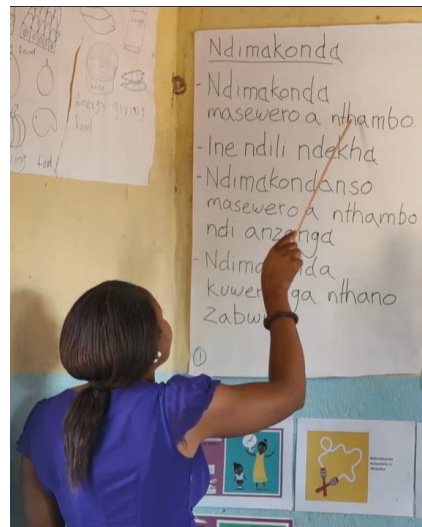 Food
Energy giving
food
Ndimakonda
- Ndimakonda
masewero a nthambo.
- Ine ndili ndekha
- Ndimakondanso
masewero a nthambo
ndi anzanga
kuwer ga nthano
1